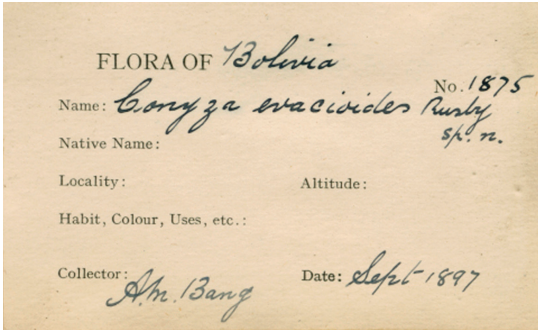 FLORA OF Bolivia
No. 1875
Name: Conyza evacioides Rusby
sp. n.
Native Name:
Locality: Altitude:
Habit, Colour, Uses, etc.:
Collector: Date: Sept 1897
A.M. Bang